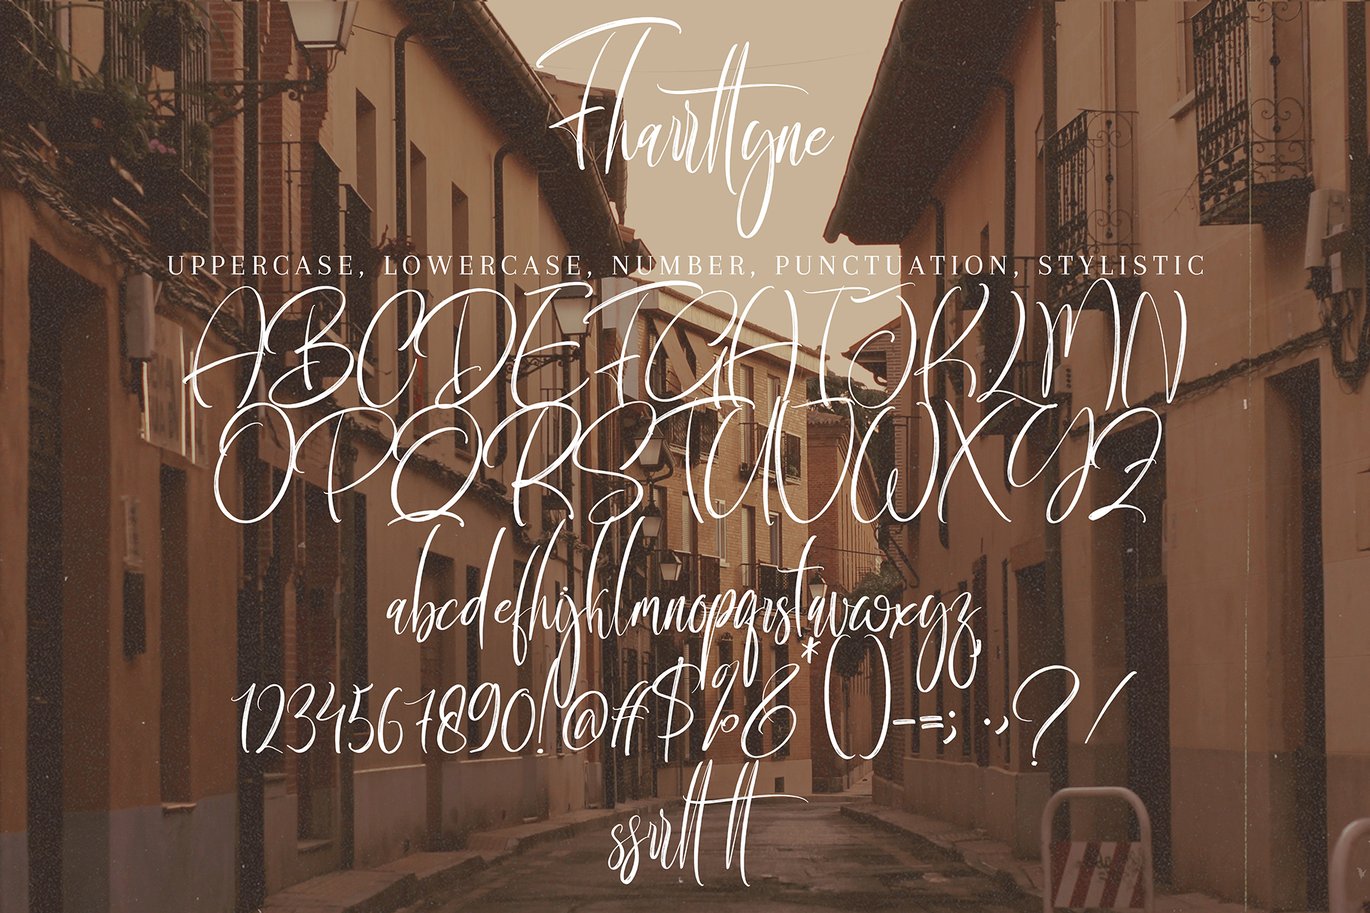 Fharrttyne
UPPERCASE, LOWERCASE, NUMBER, PUNCTUATION, STYLISTIC
ABCDEFGHIJKLMN
OPQRSTUVWXYZ
abcdefhijklmnopqrstuvwxyz
1234567890!@#$%&*()-=;:.,?/
ss rr tt tt